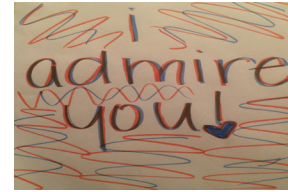 i
admire
you!